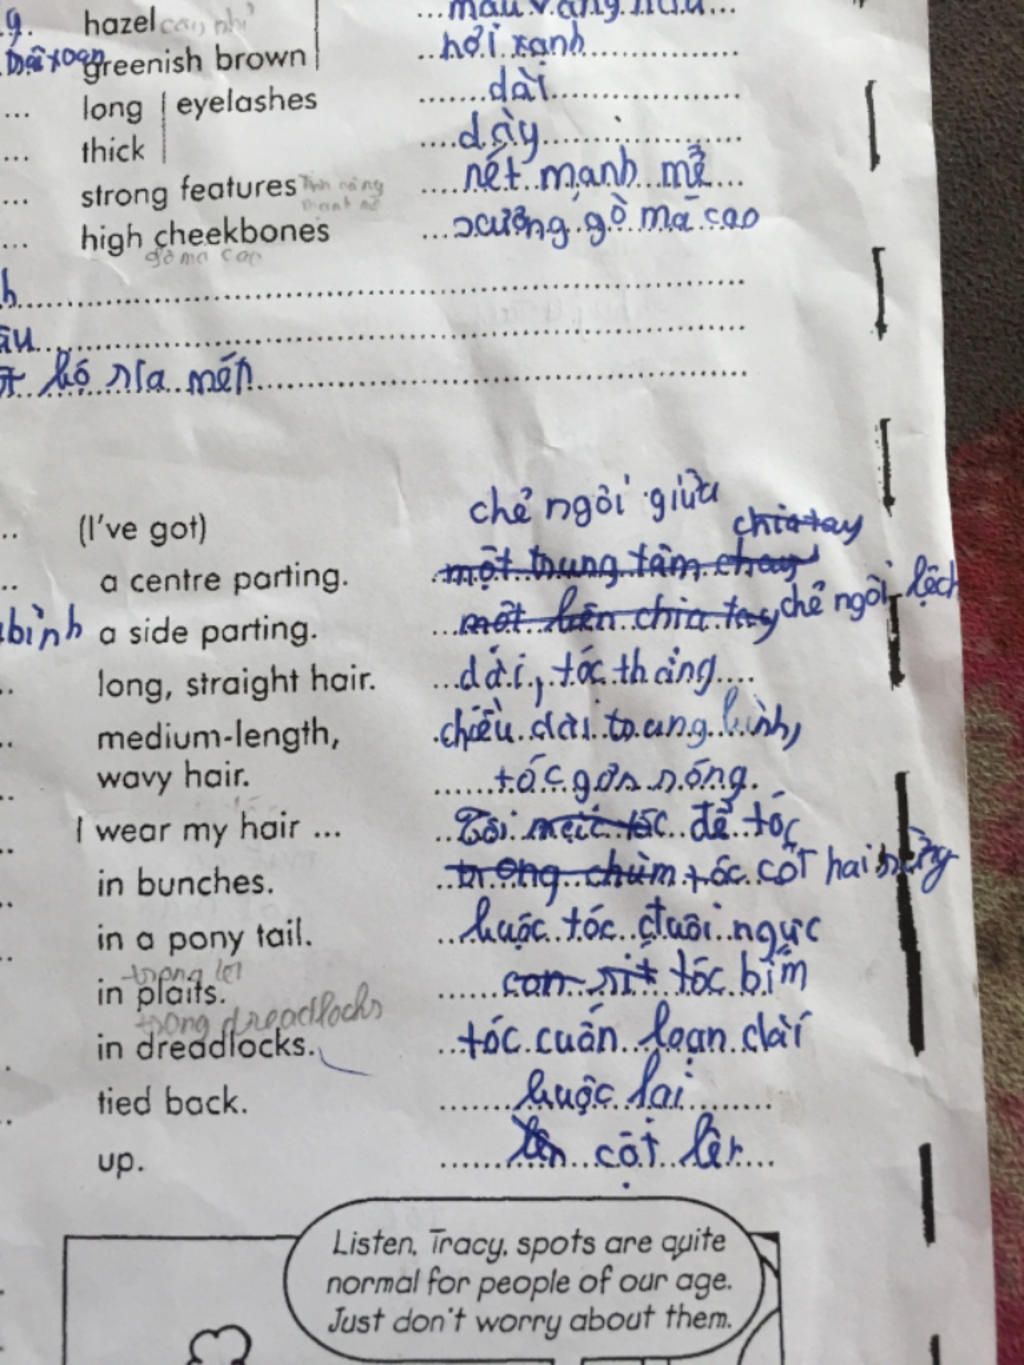 g. hazel cây phỉ màu vàng nâu
greenish brown hơi xanh
... long eyelashes dài
... thick dày
... strong features Tính năng mạnh mẽ nét mạnh mẽ
... high cheekbones xương gò má cao
gò má cao
h
âu
bộ ria mép
chẻ ngôi giữa
.. (I've got) chia tay
.. a centre parting. một trung tâm chay
bình a side parting. một bên chia tay chẻ ngôi lệch
.. long, straight hair. dài, tóc thẳng
.. medium-length, chiều dài trung bình,
.. wavy hair. tóc gợn sóng.
.. I wear my hair ... Tôi mặc tóc để tóc
.. in bunches. trong chùm tóc cột hai sừng
.. in a pony tail. buộc tóc đuôi ngực
.. in plaits. tóc bím
trong dreadlocks
in dreadlocks. tóc cuốn loạn dài
tied back. buộc lại
up. lên cột lên
Listen, Tracy, spots are quite
normal for people of our age.
Just don't worry about them.